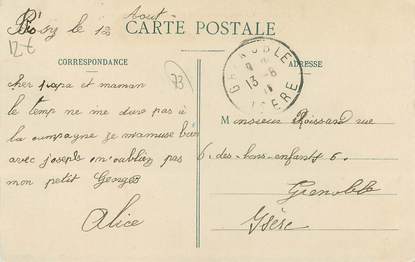 Août
le 12
12€
CARTE POSTALE
CORRESPONDANCE
ADRESSE
73
GRENOBLE
13 -8
ISERE
cher papa et maman
le temp ne me dure pas à
la campagne je m'amuse bien
avec joseph n'oubliez pas
mon petit Georges
Alice
Monsieur Roissard rue
6. des bons-enfants 6.
Grenoble
Isère